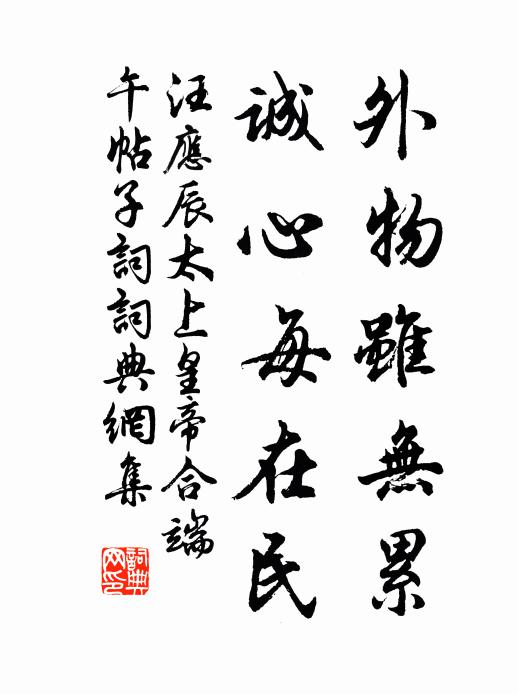 外物雖無累
誠心每在民
汪應辰太上皇帝合端
午帖子詞詞典網集
詞典網印